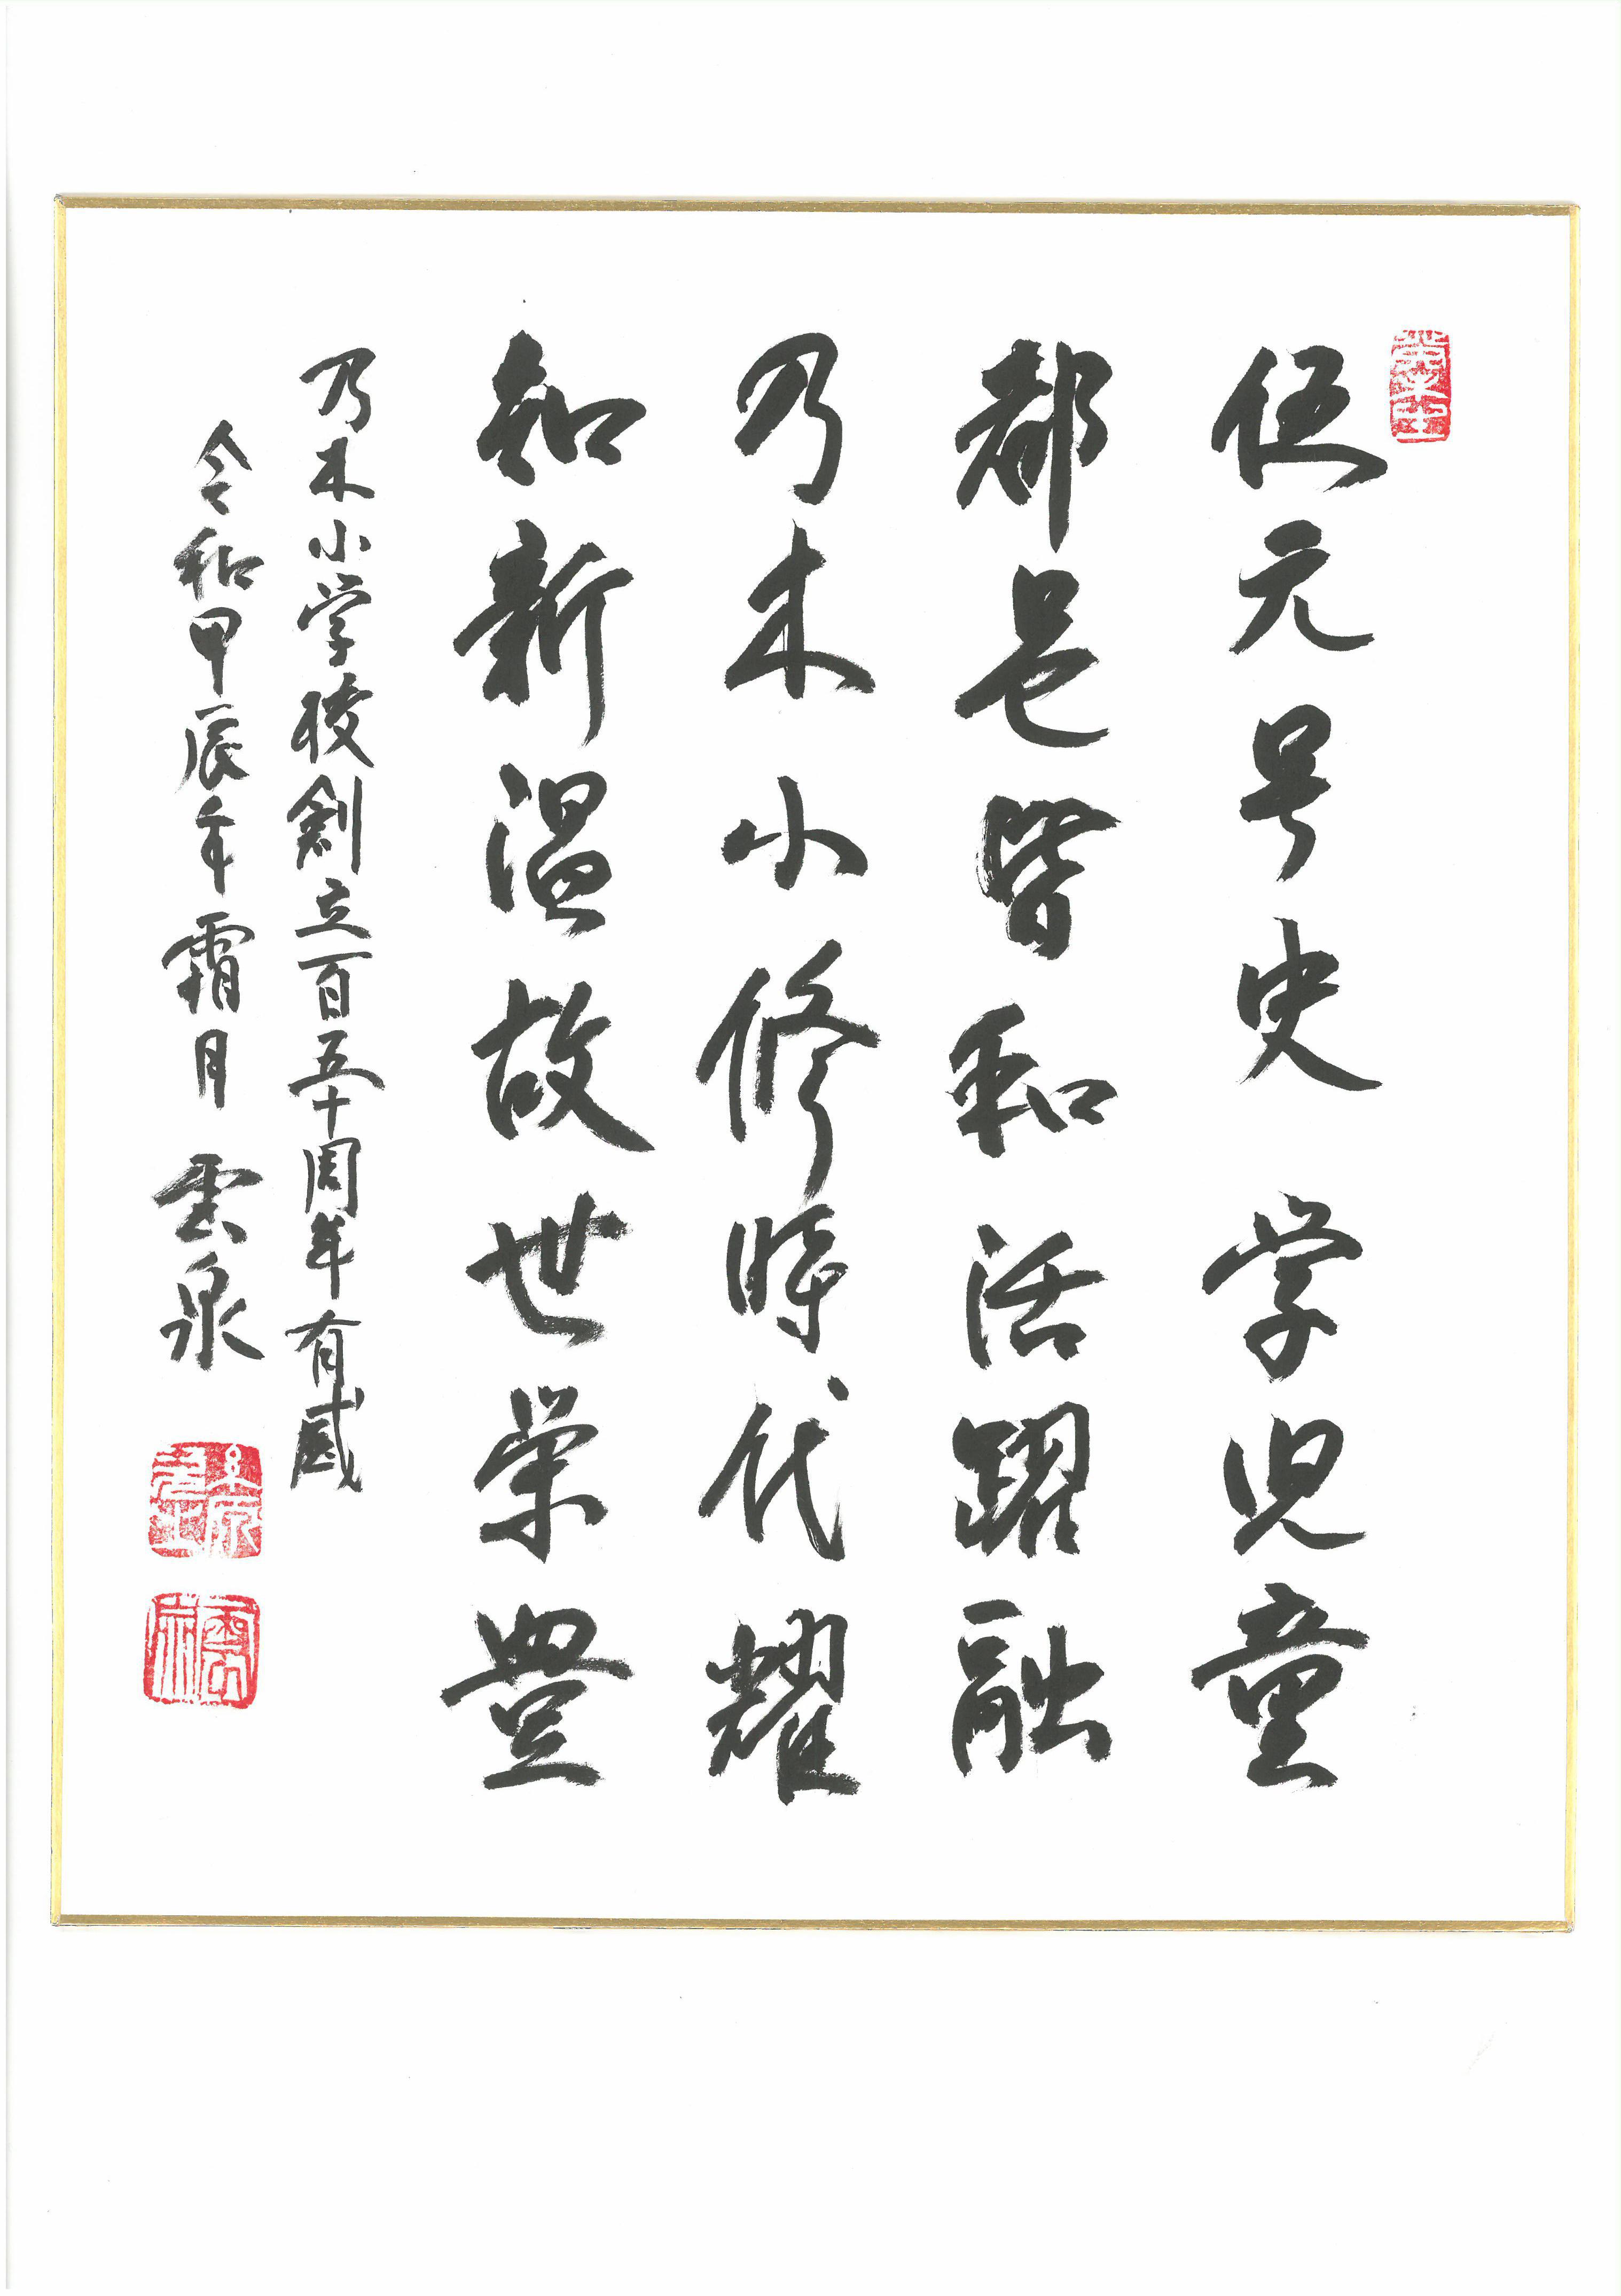 伍元号史学児童
都邑皆和活躍融
乃木小修時代耀
知新温故世栄豊
乃木小学校創立百五十周年有感
令和甲辰年霜月 雲泉